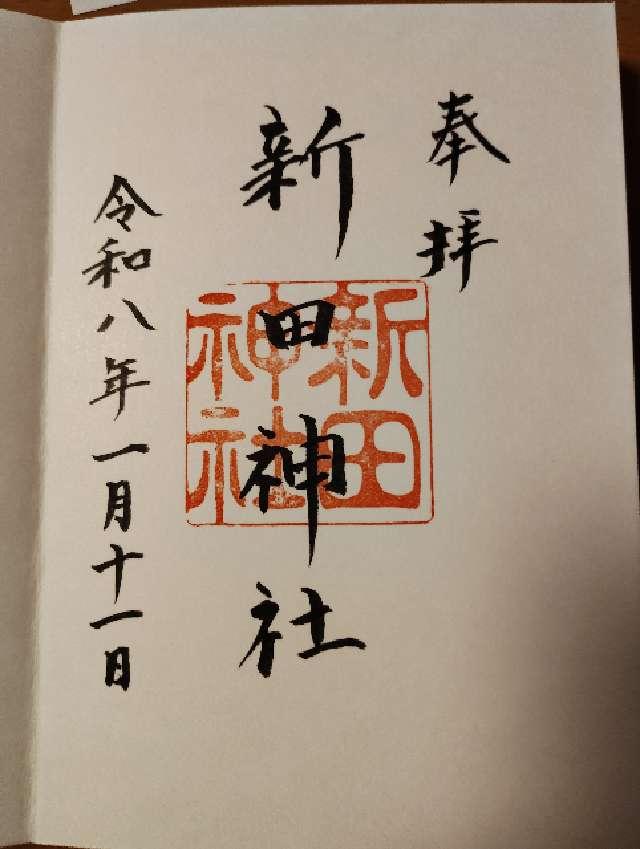 奉拝
新田神社
新田神社
令和八年一月十一日